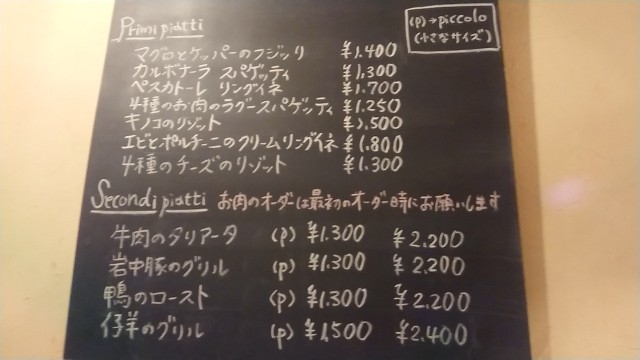 Primi piatti
(P)→piccolo
(小さなサイズ)
マグロとケッパーのフジッリ ¥1.400
カルボナーラ スパゲッティ ¥1,300
ペスカトーレ リングイネ ¥1.700
4種のお肉のラグースパゲッティ ¥1.250
キノコのリゾット ¥1,500
エビとポルチーニのクリームリングイネ ¥1.800
4種のチーズのリゾット ¥1.300
Secondi piatti お肉のオーダーは最初のオーダー時にお願いします
牛肉のタリアータ (P) ¥1.300 ¥2.200
岩中豚のグリル (P) ¥1.300 ¥2.200
鴨のロースト (P) ¥1,300 ¥2,200
仔羊のグリル (P) ¥1,500 ¥2.400